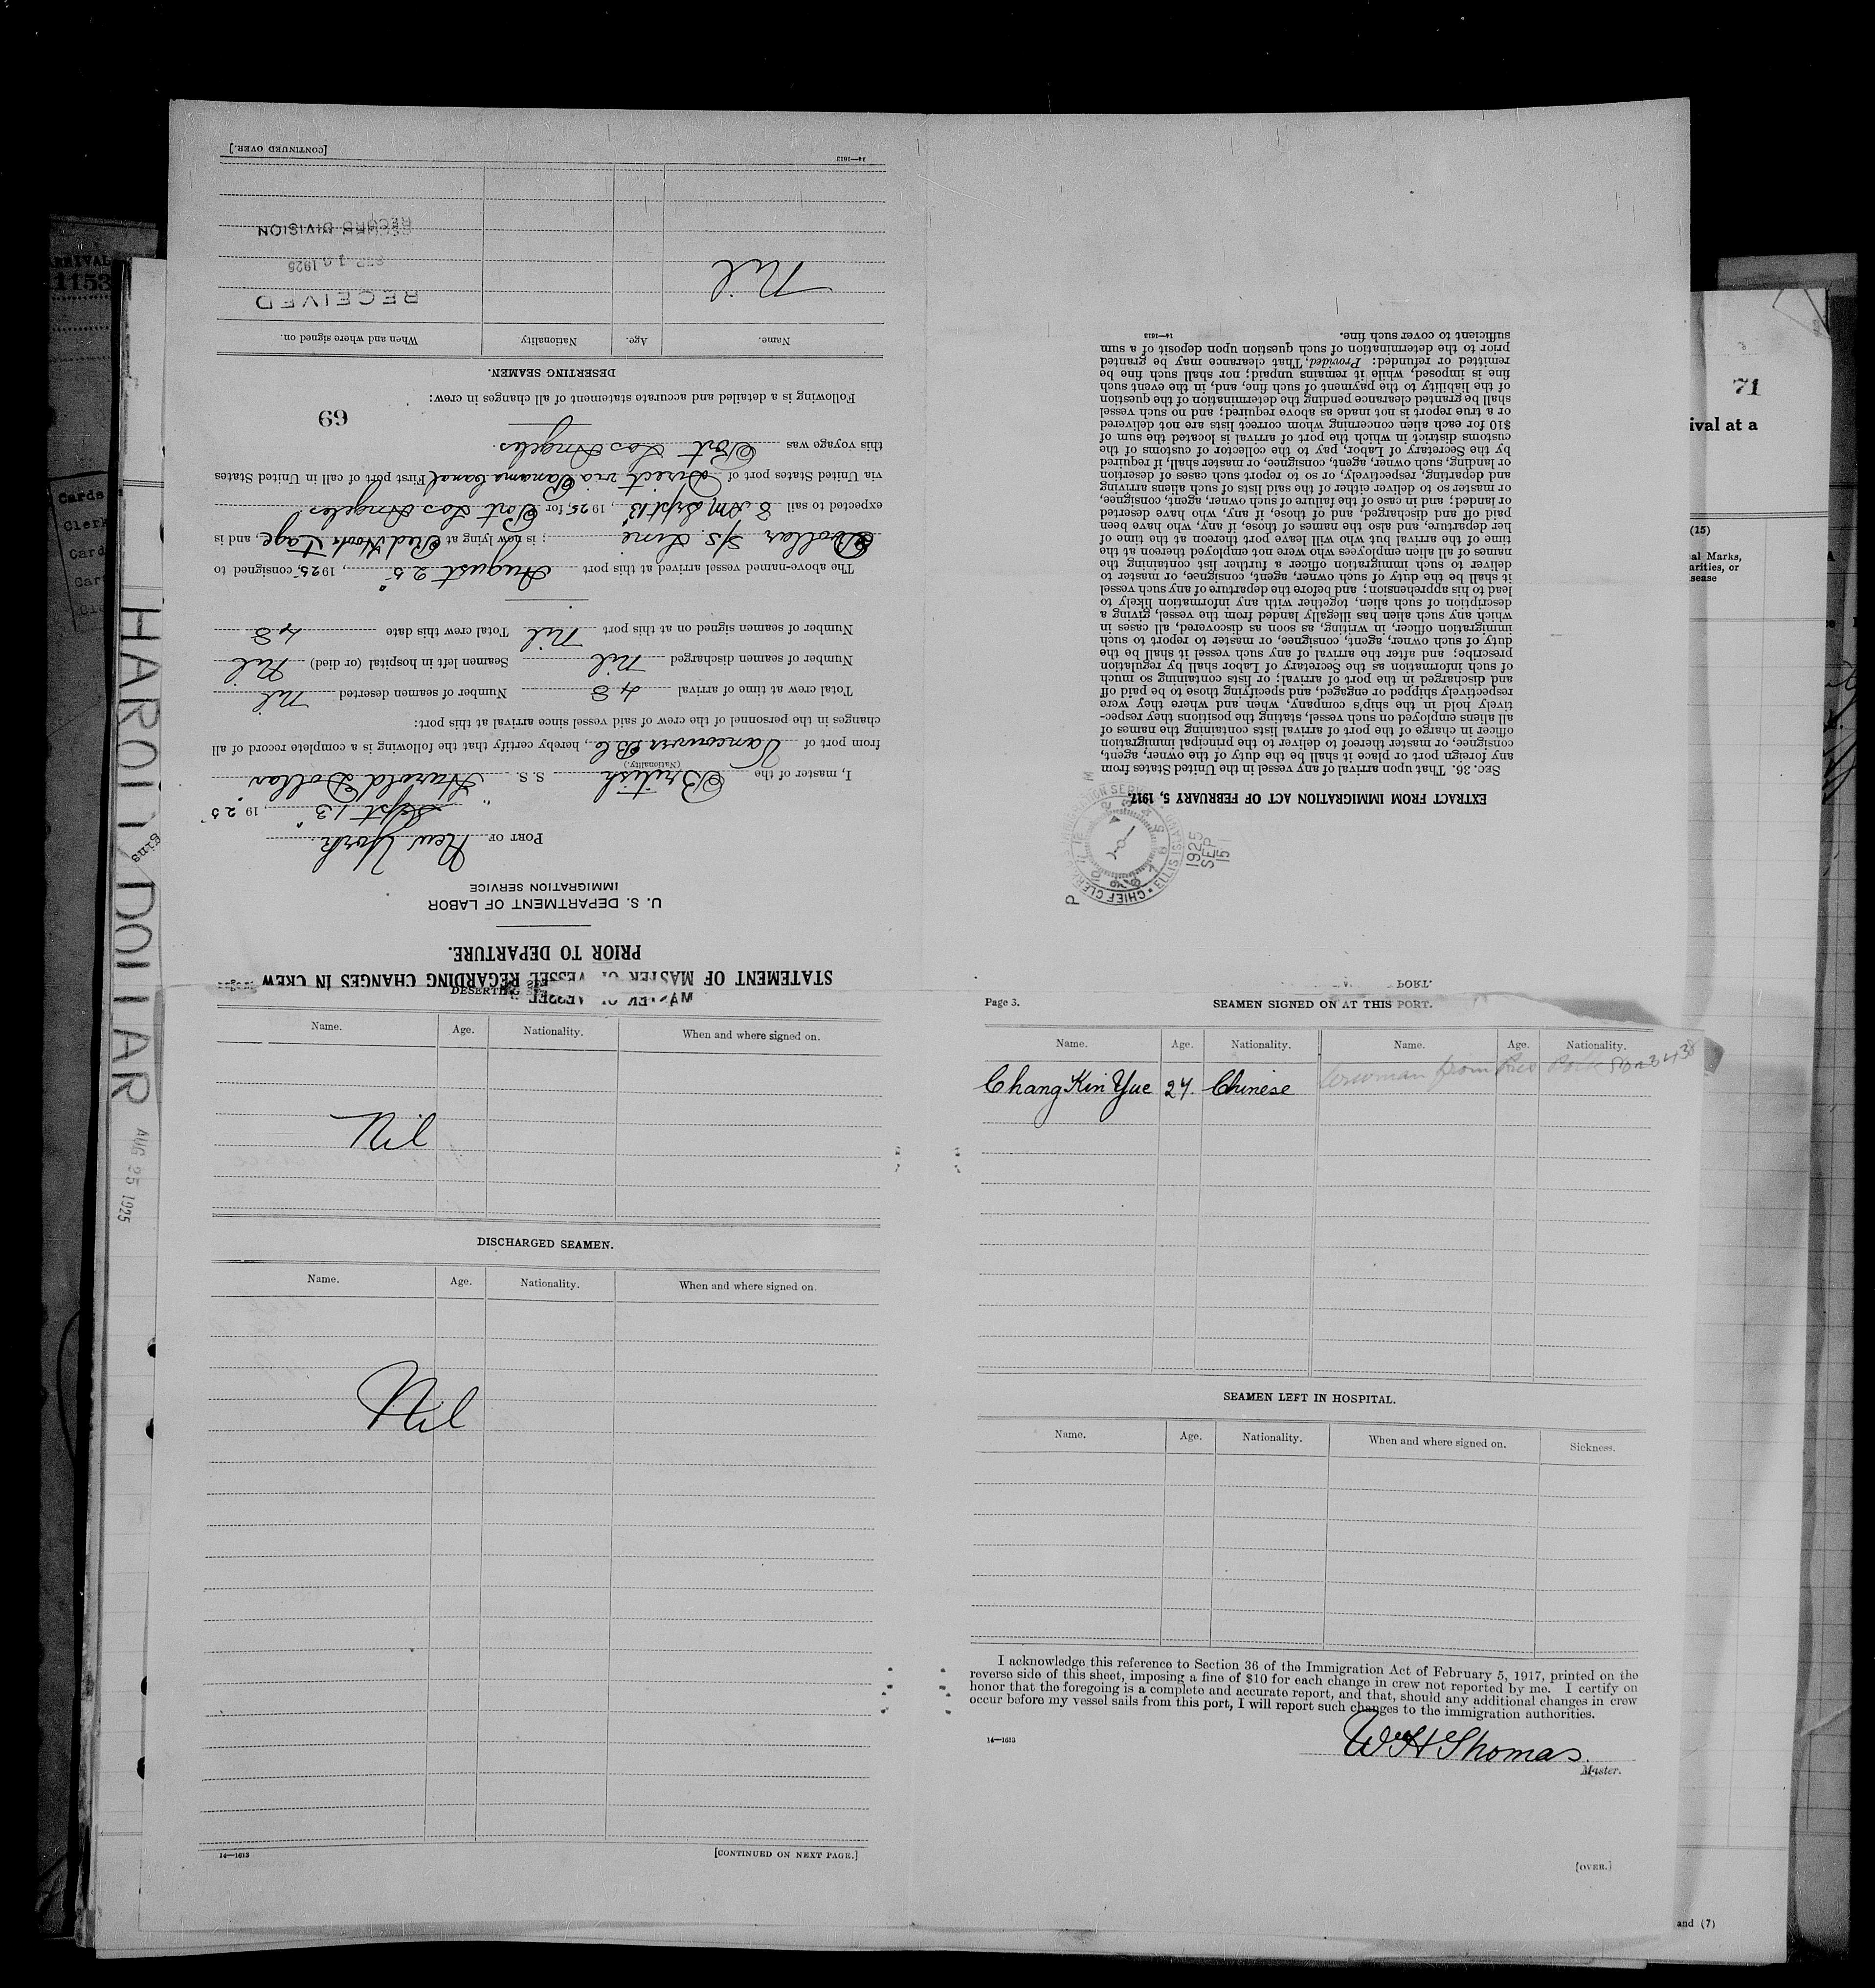 STATEMENT OF MASTER OF VESSEL REGARDING CHANGES IN CREW
PRIOR TO DEPARTURE.
U. S. DEPARTMENT OF LABOR
IMMIGRATION SERVICE
PORT OF New York
Sept 13", 1925
I, master of the British S. S. "Harold Dollar"
(Nationality.)
from port of Vancouver B C, hereby certify that the following is a complete record of all
changes in the personnel of the crew of said vessel since arrival at this port:
Total crew at time of arrival 48 Number of seamen deserted Nil
Number of seamen discharged Nil Seamen left in hospital (or died) Nil
Number of seamen signed on at this port Nil Total crew this date 48
The above-named vessel arrived at this port August 25", 1925, consigned to
Dollar S/S. Line; is now lying at Red Hook Flags, and is
expected to sail 8 AM Sept 13", 1925, for Port Los Angeles.
via United States port of Direct via Panama Canal First port of call in United States
this voyage was Port Los Angeles.
Following is a detailed and accurate statement of all changes in crew:
69
DESERTING SEAMEN.
Name. Age. Nationality. When and where signed on.
Nil
RECEIVED
1925
RECORD DIVISION
14—1613 [CONTINUED OVER.]
P M
CHIEF CLERK
ELLIS ISLAND
1925
SEP
15
EXTRACT FROM IMMIGRATION ACT OF FEBRUARY 5, 1917.
SEC. 36. That upon arrival of any vessel in the United States from
any foreign port or place it shall be the duty of the owner, agent,
consignee, or master thereof to deliver to the principal immigration
officer in charge of the port of arrival lists containing the names of
all aliens employed on such vessel, stating the positions they respec-
tively hold in the ship's company, when and where they were
respectively shipped or engaged, and specifying those to be paid off
and discharged in the port of arrival; or lists containing so much
of such information as the Secretary of Labor shall by regulation
prescribe; and after the arrival of any such vessel it shall be the
duty of such owner, agent, consignee, or master to report to such
immigration officer, in writing, as soon as discovered, all cases in
which any such alien has illegally landed from the vessel, giving a
description of such alien, together with any information likely to
lead to his apprehension; and before the departure of any such vessel
it shall be the duty of such owner, agent, consignee, or master to
deliver to such immigration officer a further list containing the
names of all alien employees who were not employed thereon at the
time of the arrival but who will leave port thereon at the time of
her departure, and also the names of those, if any, who have been
paid off and discharged, and of those, if any, who have deserted
or landed; and in case of the failure of such owner, agent, consignee,
or master so to deliver either of the said lists of such aliens arriving
and departing, respectively, or so to report such cases of desertion
or landing, such owner, agent, consignee, or master shall, if required
by the Secretary of Labor, pay to the collector of customs of the
customs district in which the port of arrival is located the sum of
$10 for each alien concerning whom correct lists are not delivered
or a true report is not made as above required; and no such vessel
shall be granted clearance pending the determination of the question
of the liability to the payment of such fine, and, in the event such
fine is imposed, while it remains unpaid; nor shall such fine be
remitted or refunded: Provided, That clearance may be granted
prior to the determination of such question upon deposit of a sum
sufficient to cover such fine.
14—1613
DESERTING
Name. Age. Nationality. When and where signed on.
Nil
DISCHARGED SEAMEN.
Name. Age. Nationality. When and where signed on.
Nil
14—1613 [CONTINUED ON NEXT PAGE.]
Page 3. SEAMEN SIGNED ON AT THIS PORT.
Name. Age. Nationality. Name. Age. Nationality.
Chang Kin Yue 27. Chinese
SEAMEN LEFT IN HOSPITAL.
Name. Age. Nationality. When and where signed on. Sickness.
I acknowledge this reference to Section 36 of the Immigration Act of February 5, 1917, printed on the
reverse side of this sheet, imposing a fine of $10 for each change in crew not reported by me. I certify on
honor that the foregoing is a complete and accurate report, and that, should any additional changes in crew
occur before my vessel sails from this port, I will report such changes to the immigration authorities.
W H Thomas.
Master.
14—1613
[OVER.]
HAROLD DOLLAR AUG 25 1925
1153
Cards
71
ival at a
(15)
al Marks,
arities, or
sease
and (7)